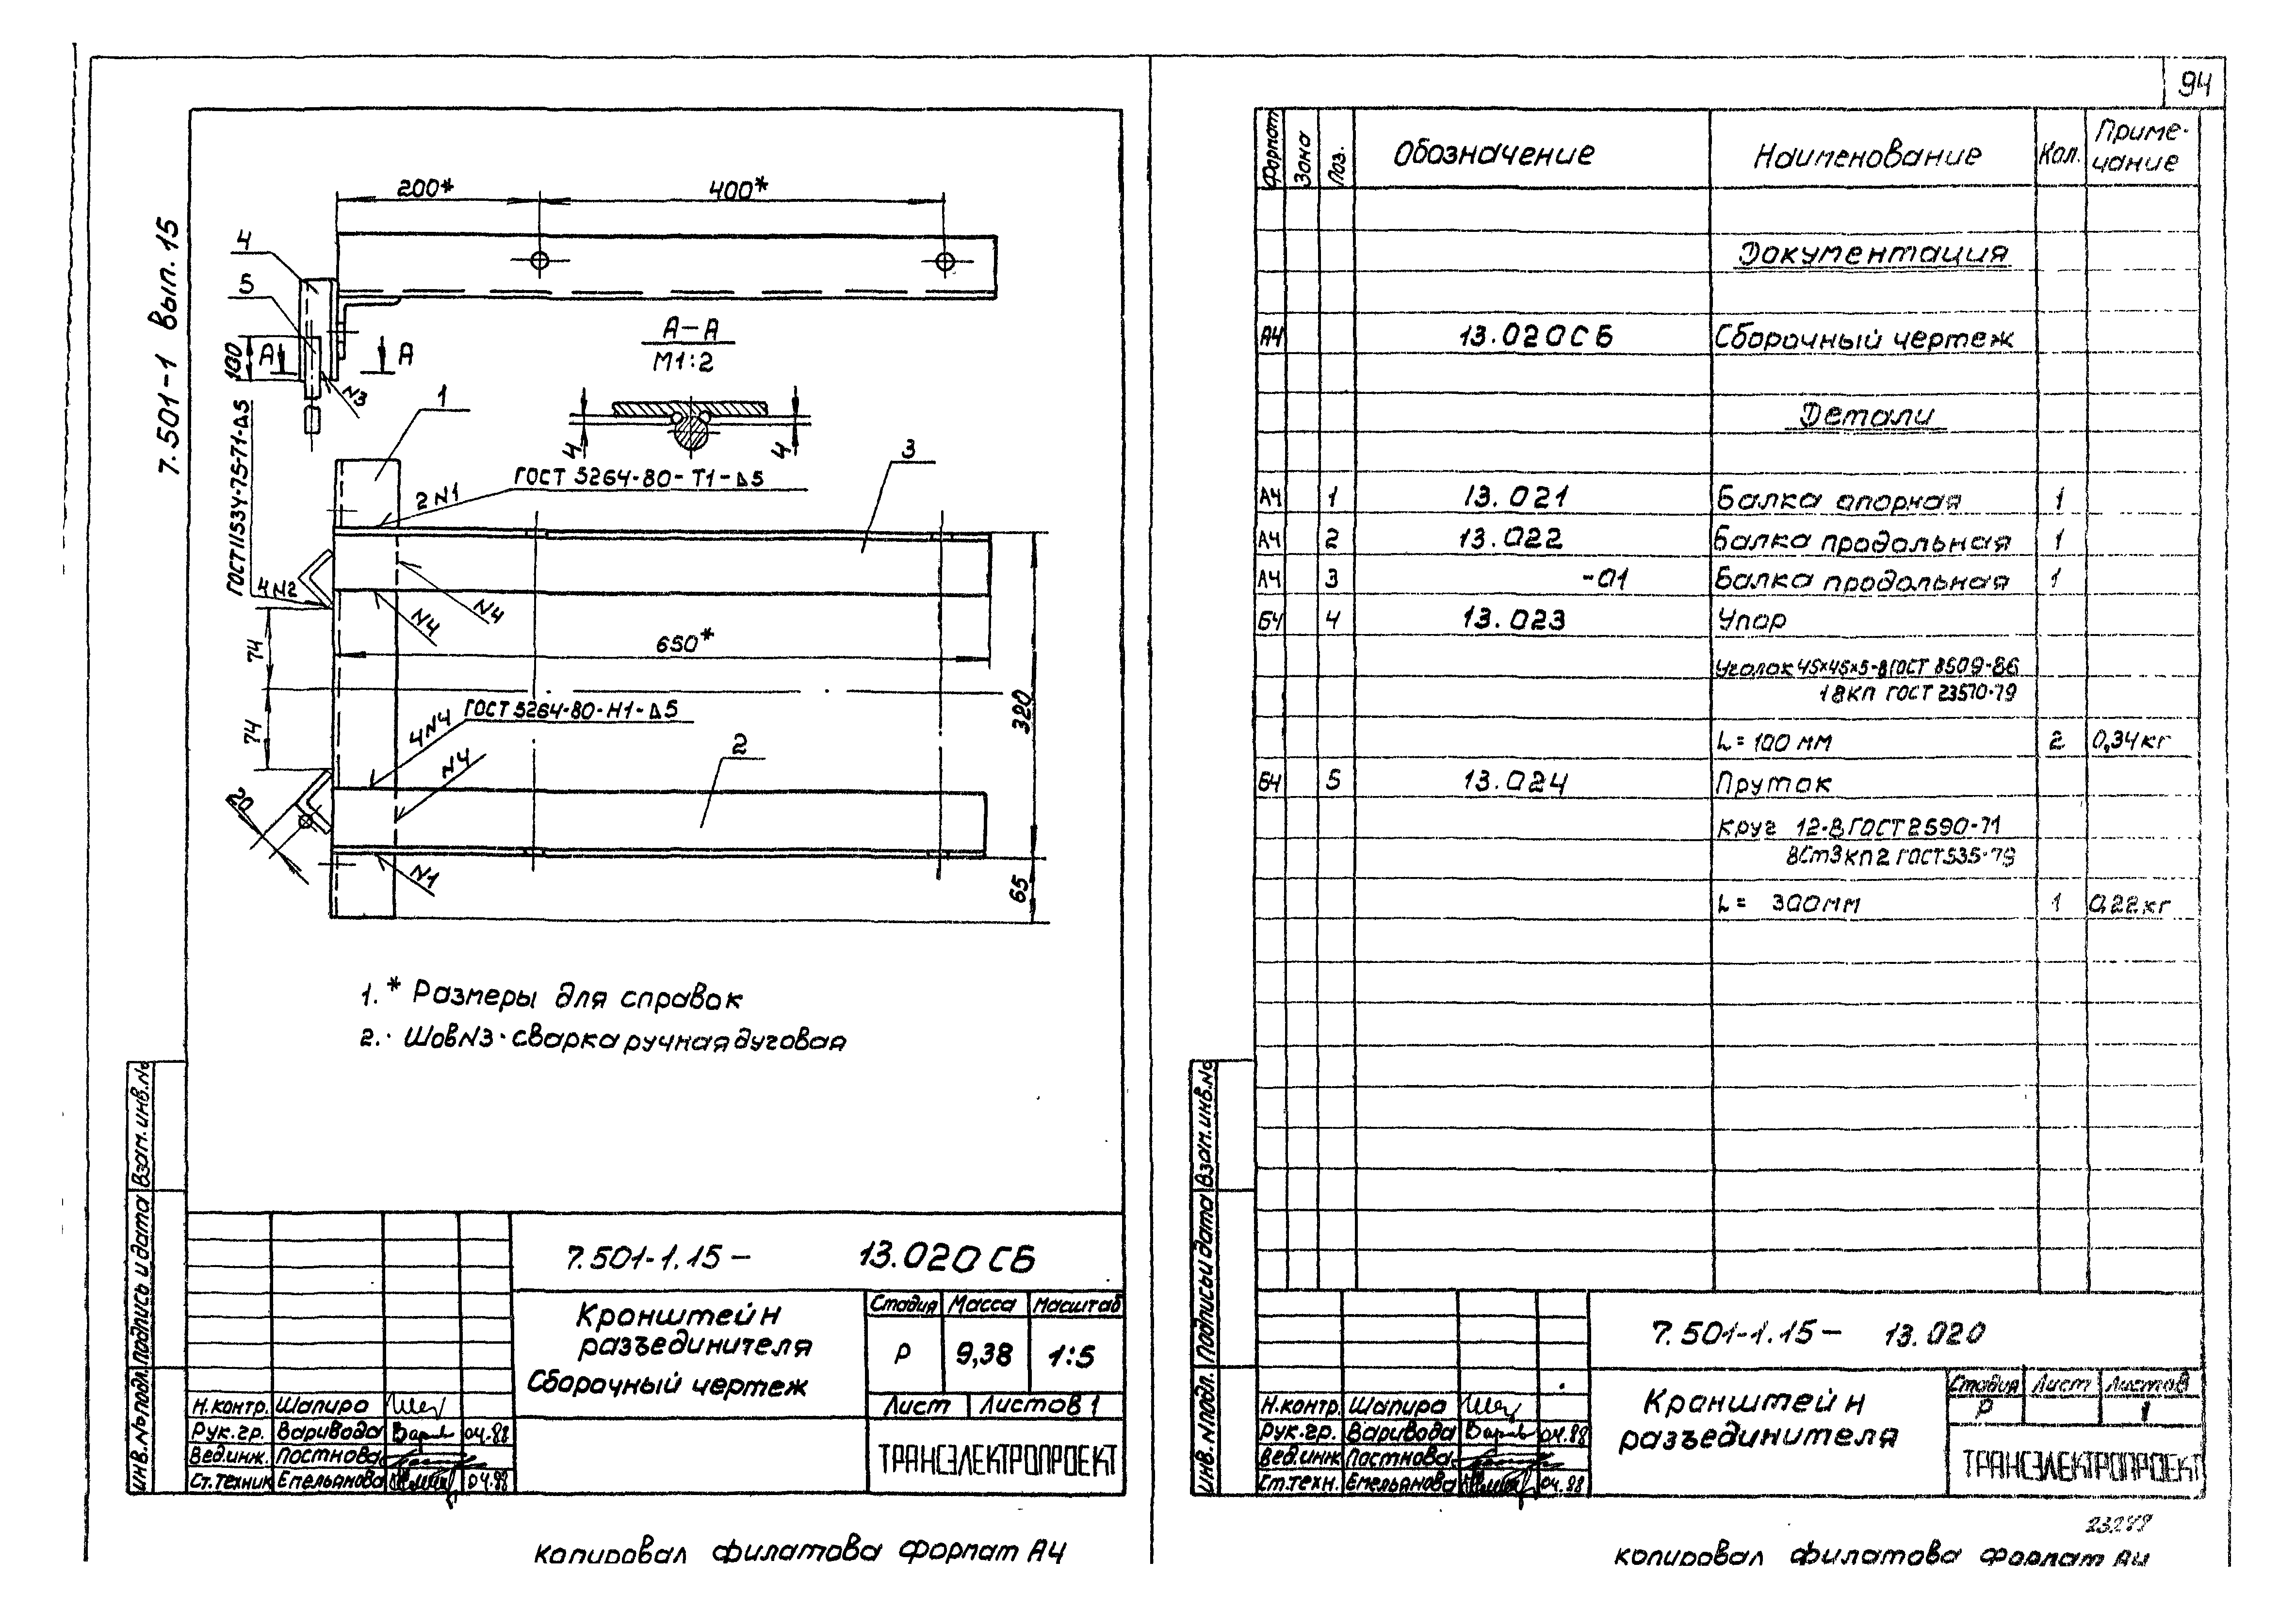 94
7.501-1 Вып. 15
200*
400*
4
5
А-А
М1:2
А
А
100
N3
1
4
4
3
ГОСТ 11534-75-Т1-Δ5
ГОСТ 5264-80-Т1-Δ5
2N1
4N2
N4
N4
74
650*
74
ГОСТ 5264-80-Н1-Δ5
4N4
N4
2
320
20
N1
65
1.* Размеры для справок
2. Шов N3 - сварка ручная дуговая
Взам.инв.№
Подпись и дата
Инв.№ подл.
7.501-1.15- 13.020 СБ
Кронштейн
разъединителя
Сборочный чертеж
Стадия Масса Масштаб
Р 9,38 1:5
Лист Листов 1
ТРАНСЭЛЕКТРОПРОЕКТ
Н.контр. Шапиро
Рук.гр. Варивода 04.88
Вед.инж. Постнова
Ст.техник Емельянова 04.88
Копировал Филатова Формат А4
Формат Зона Поз. Обозначение Наименование Кол. Приме-
чание
Документация
А4 13.020СБ Сборочный чертеж
Детали
А4 1 13.021 Балка опорная 1
А4 2 13.022 Балка продольная 1
А4 3 -01 Балка продольная 1
БЧ 4 13.023 Упор
Уголок 45х45х5-В ГОСТ 8509-86
18КП ГОСТ 23570-79
L = 100 мм 2 0,34кг
БЧ 5 13.024 Пруток
Круг 12-В ГОСТ 2590-71
ВСт3кп2 ГОСТ 535-79
L = 300мм 1 0,22кг
Взам.инв.№
Подпись и дата
Инв.№ подл.
7.501-1.15- 13.020
Кронштейн
разъединителя
Стадия Лист Листов
Р 1
ТРАНСЭЛЕКТРОПРОЕКТ
Н.контр. Шапиро
Рук.гр. Варивода 04.88
Вед.инж Постнова
Ст.техн. Емельянова 04.88
Копировал Филатова Формат А4